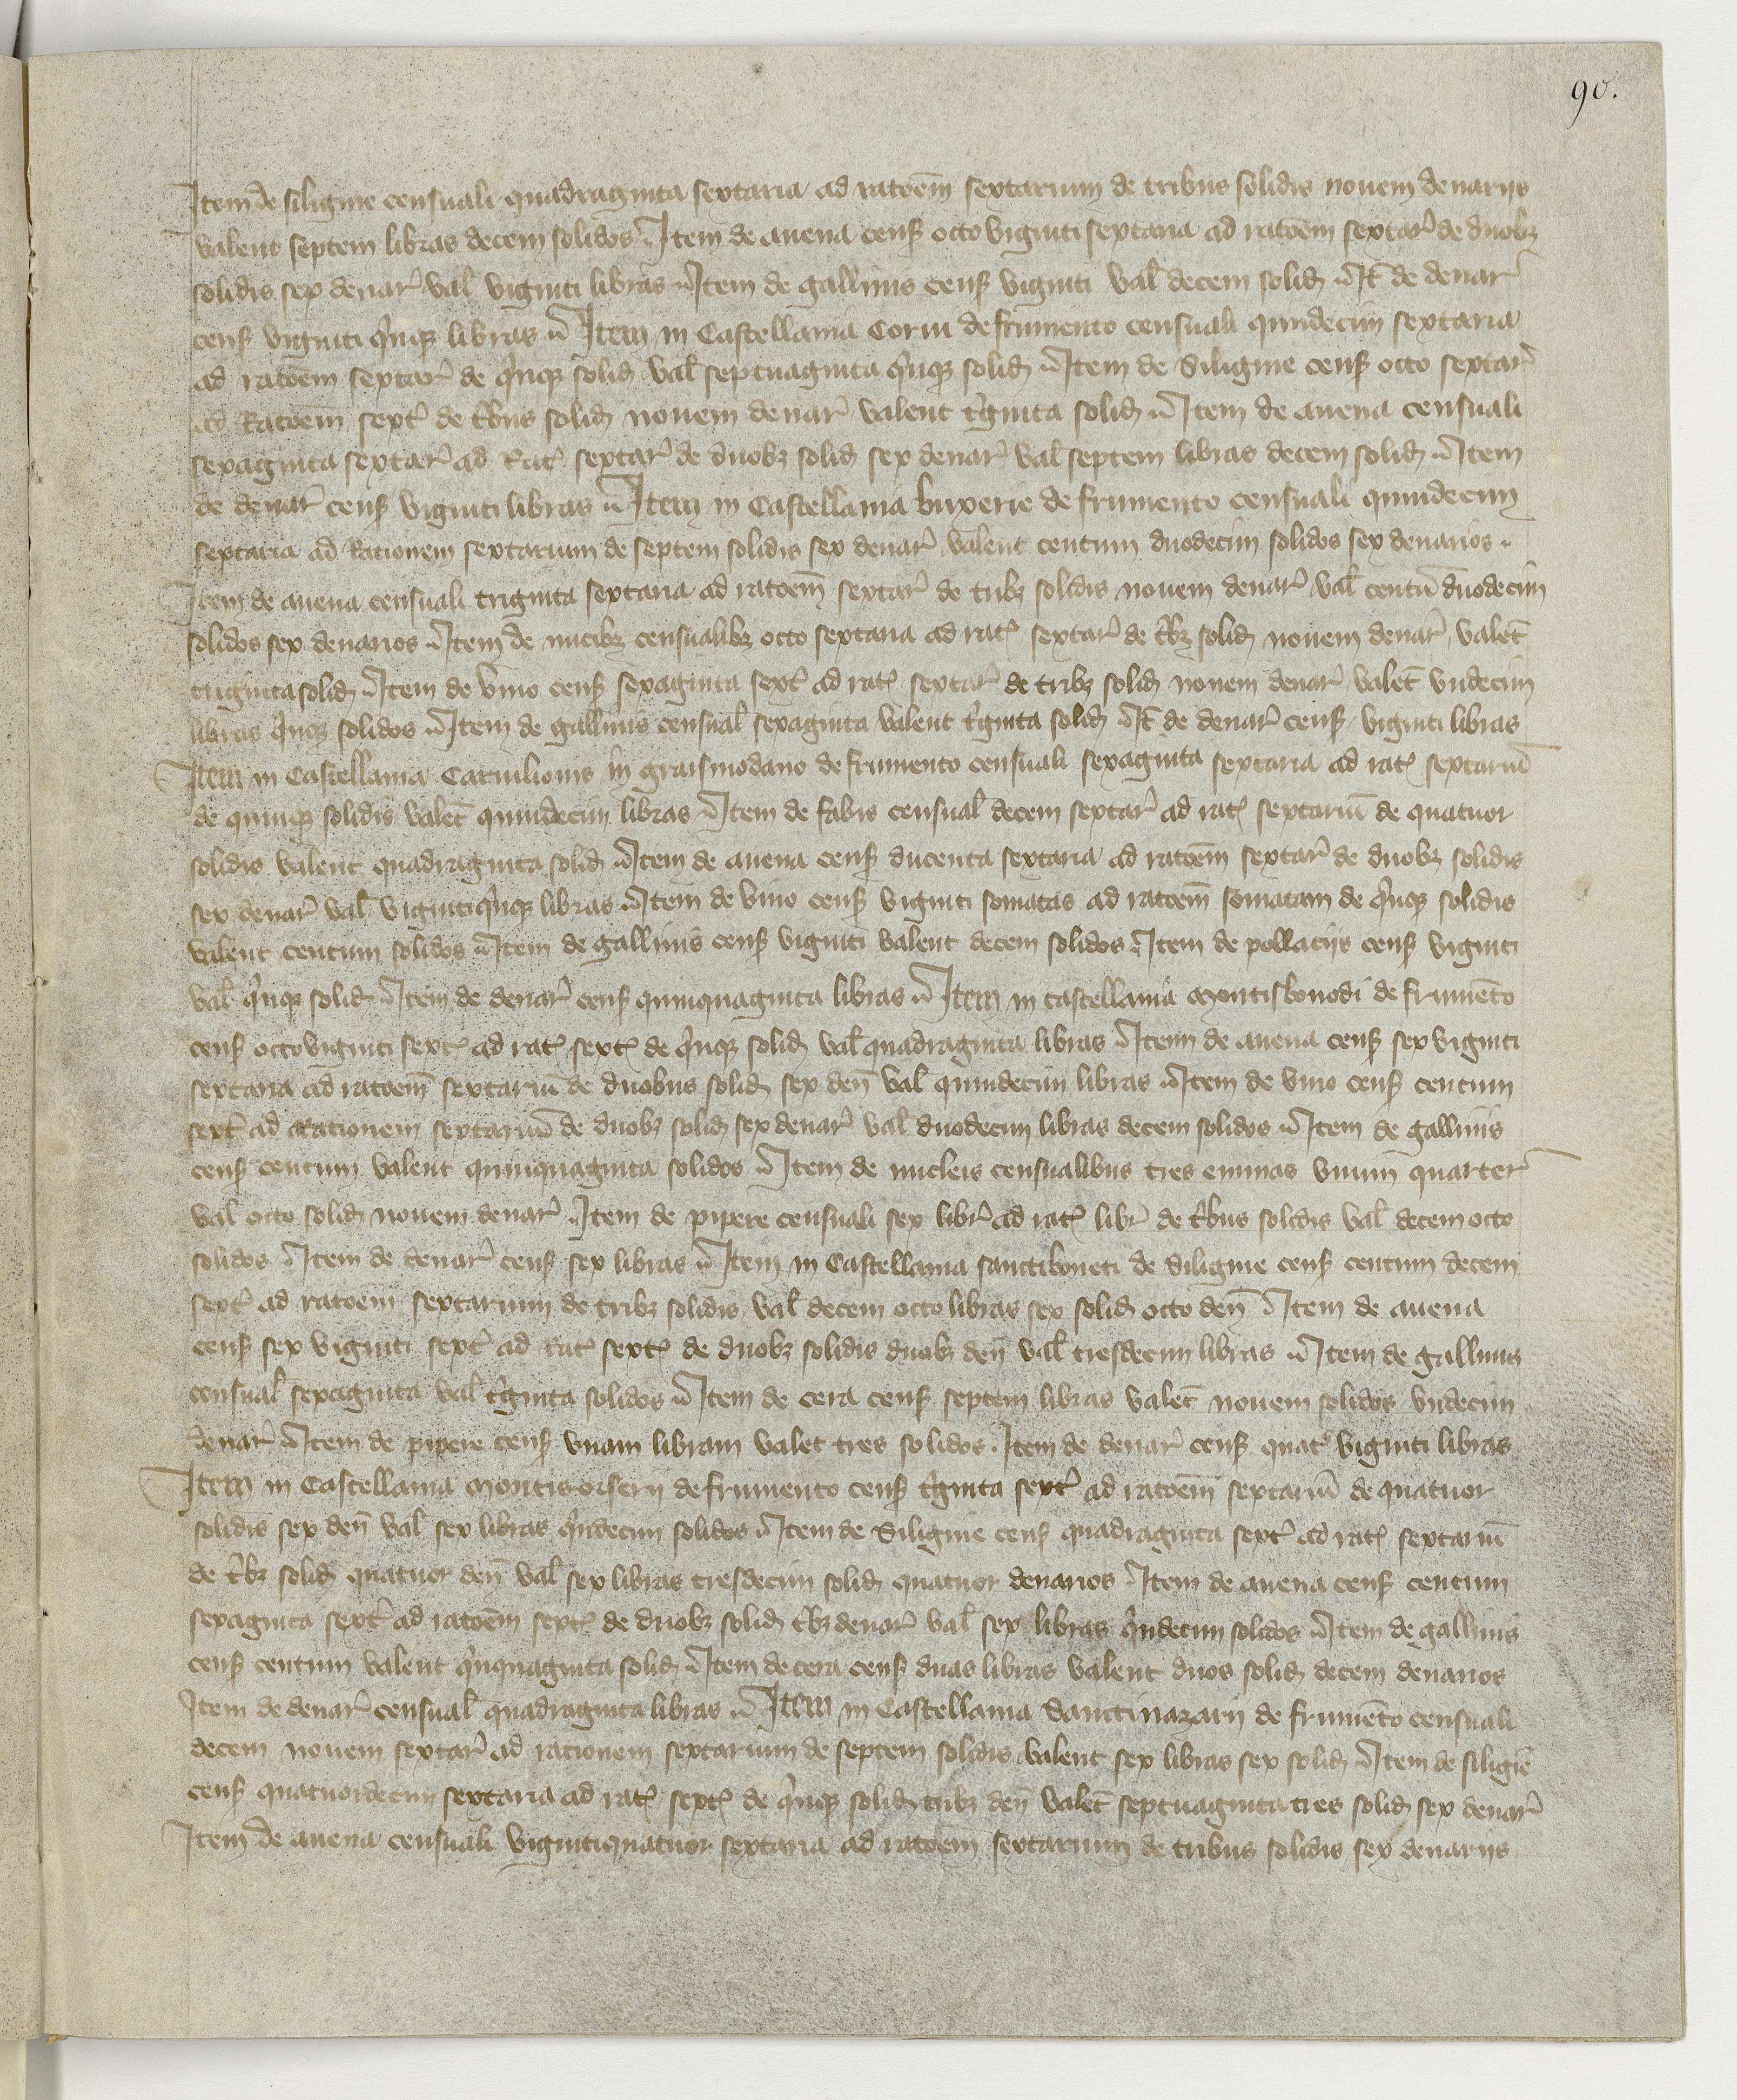 90.
Item de siligine censuali quadraginta sextaria ad ratoẽm sextarium de tribus solidis novem denariis
valent septem libras decem solidos Item de avena cens̃ octo viginti sextaria ad ratoẽm sextar̃ de duobꝫ
solidis sex denar̃ val̃ viginti libras Item de gallinis cens̃ viginti val̃ decem solid̃ It̃ de denar̃
cens̃ viginti qͥnqꝫ libras Item in Castellania Corvi de frumento censuali quindecim sextaria
ad ratoẽm sextar̃ de qͥnqꝫ solid̃ val̃ septuaginta qͥnqꝫ solid̃ Item de Siligine cens̃ octo sextar̃
ad Ratoẽm sext̃ de tͥbus solid̃ novem denar̃ valent tͥginta solid̃ Item de avena censuali
sexaginta sextar̃ ad Rat̃ sextar̃ de duobꝫ solid̃ sex denar̃ val̃ septem libras decem solid̃ Item
de denar̃ cens̃ viginti libras Item in Castellania buxerie de frumento censuali quindecim
sextaria ad Rationem sextarium de septem solidis sex denar̃ valent centum duodecim solidos sex denarios
Item de avena censuali triginta sextaria ad ratoẽm sextar̃ de tribꝫ solidis novem denar̃ val̃ centũ duodecim
solidos sex denarios Item de nucibꝫ censualibꝫ octo sextaria ad rat̃ sextar̃ de tͥbꝫ solid̃ novem denar̃ valet̃
triginta solid̃ Item de vino cens̃ sexaginta sext̃ ad rat̃ sextar̃ de tribꝫ solid̃ novem denar̃ valet̃ undecim
libras qͥnqꝫ solidos Item de gallinis censual̃ sexaginta valent tͥginta solid̃ It̃ de denar̃ cens̃ viginti libras
Item in Castellania Carvilionis in graisivodano de frumento censuali sexaginta sextaria ad rat̃ sextariũ
de quinqꝫ solidis valet̃ quindecim libras Item de fabis censual̃ decem sextar̃ ad rat̃ sextariũ de quatuor
solidis valent quadraginta solid̃ Item de avena cens̃ ducenta sextaria ad ratoẽm sextar̃ de duobꝫ solidis
sex denar̃ val̃ vigintiqͥnqꝫ libras Item de vino cens̃ viginti somatas ad ratoẽm somatam de qͥnqꝫ solidis
valent centum solidos Item de gallinis cens̃ viginti valent decem solidos Item de pollaciis cens̃ viginti
val̃ qͥnqꝫ solid̃ Item de denar̃ cens̃ quinquaginta libras Item in castellania Montisbonodi de frumẽto
cens̃ octoviginti sext̃ ad rat̃ sext̃ de qͥnqꝫ solid̃ val̃ quadraginta libras Item de avena cens̃ sex viginti
sextaria ad ratoẽm sextariũ de duobus solid̃ sex deñ val̃ quindecim libras Item de vino cens̃ centum
sext̃ ad Rationem sextariũ de duobꝫ solid̃ sex denar̃ val̃ duodecim libras decem solidos Item de gallinis
cens̃ centum valent quinquaginta solidos Item de nucleis censualibus tres eminas unum quarter̃
val̃ octo solid̃ novem denar̃ Item de pipere censuali sex libr̃ ad rat̃ libr̃ de tͥbus solidis val̃ decem octo
solidos Item de denar̃ cens̃ sex libras Item in Castellania sanctiboneti de Siligine cens̃ centum decem
sext̃ ad ratoẽm sextarium de tribꝫ solidis val̃ decem octo libras sex solid̃ octo deñ Item de avena
cens̃ sex viginti sext̃ ad rat̃ sext̃ de duobꝫ solidis duobꝫ deñ val̃ tresdecim libras Item de gallinis
censual̃ sexaginta val̃ tͥginta solidos Item de cera cens̃ septem libras valet̃ novem solidos undecim
denar̃ Item de pipere cens̃ unam libram valet tres solidos Item de denar̃ cens̃ quatͬ viginti libras
Item in Castellania Montisorserii de frumento cens̃ tͥginta sext̃ ad ratoẽm sextariũ de quatuor
solidis sex deñ val̃ sex libras qͥndecim solidos Item de Siligine cens̃ quadraginta sext̃ ad rat̃ sextariũ
de tͥbꝫ solid̃ quatuor deñ val̃ sex libras tresdecim solid̃ quatuor denarios Item de avena cens̃ centum
sexaginta sext̃ ad ratoẽm sext̃ de duobꝫ solid̃ tͥbꝫ denar̃ val̃ sex libras qͥndecim solidos Item de gallinis
cens̃ centum valent qͥnquaginta solid̃ Item de cera cens̃ duas libras valent duos solid̃ decem denarios
Item de denar̃ censual̃ quadraginta libras Item in Castellania Sanctinazarii de frumẽto censuali
decem novem sextar̃ ad rationem sextarium de septem solidis valent sex libras sex solid̃ Item de siligiẽ
cens̃ quatuordecim sextaria ad rat̃ sext̃ de qͥnqꝫ solid̃ tribꝫ deñ valet̃ septuaginta tres solid̃ sex denar̃
Item de avena censuali vigintiquatuor sextaria ad ratoẽm sextarium de tribus solidis sex denariis